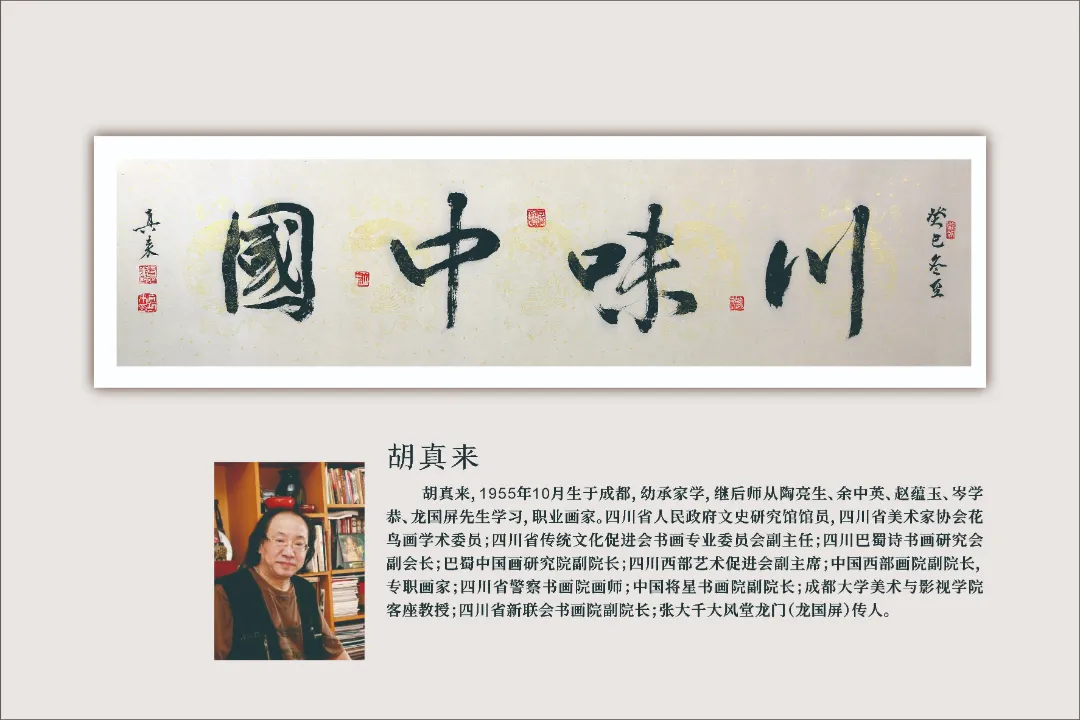 癸巳冬至
川味中國
真来
胡真来
胡真来,1955年10月生于成都,幼承家学,继后师从陶亮生、余中英、赵蕴玉、岑学
恭、龙国屏先生学习,职业画家。四川省人民政府文史研究馆馆员,四川省美术家协会花
鸟画学术委员;四川省传统文化促进会书画专业委员会副主任;四川巴蜀诗书画研究会
副会长;巴蜀中国画研究院副院长;四川西部艺术促进会副主席;中国西部画院副院长,
专职画家;四川省警察书画院画师;中国将星书画院副院长;成都大学美术与影视学院
客座教授;四川省新联会书画院副院长;张大千大风堂龙门(龙国屏)传人。